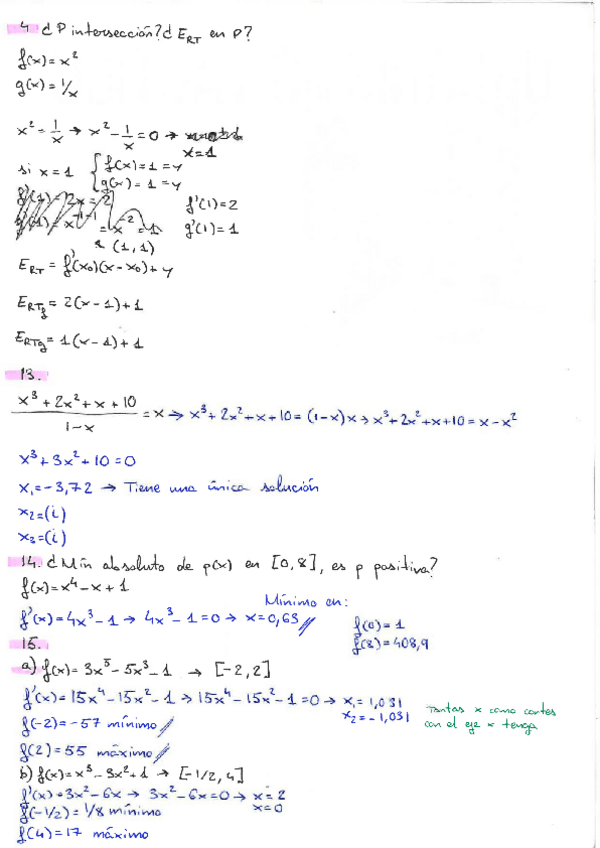 4 ¿P intersección? ¿E_RT en P?
f(x) = x²
g(x) = 1/x
x² = 1/x → x² - 1/x = 0 →
x = 1
si x = 1 { f(x) = 1 = y
g(x) = 1 = y
f'(1) = 2x = 2
f'(1) = 2
= x⁻² = 1
g'(1) = 1
(1, 1)
E_RT = f'(x₀)(x - x₀) + y
E_RTf = 2(x - 1) + 1
E_RTg = 1(x - 1) + 1
13.
x³ + 2x² + x + 10 / 1 - x = x → x³ + 2x² + x + 10 = (1 - x)x → x³ + 2x² + x + 10 = x - x²
x³ + 3x² + 10 = 0
x₁ = -3,72 → Tiene una única solución
x₂ = (i)
x₃ = (i)
14. ¿Mín absoluto de p(x) en [0,8], es p positiva?
f(x) = x⁴ - x + 1
Mínimo en:
f'(x) = 4x³ - 1 → 4x³ - 1 = 0 → x = 0,63
f(0) = 1
f(8) = 408,9
15.
a) f(x) = 3x⁵ - 5x³ - 1 → [-2, 2]
f'(x) = 15x⁴ - 15x² - 1 → 15x⁴ - 15x² - 1 = 0 → x₁ = 1,031
x₂ = -1,031
Tantas x como cortes
con el eje x tenga
f(-2) = -57 mínimo
f(2) = 55 máximo
b) f(x) = x³ - 3x² + 1 → [-1/2, 4]
f'(x) = 3x² - 6x → 3x² - 6x = 0 → x = 2
x = 0
f(-1/2) = 1/8 mínimo
f(4) = 17 máximo